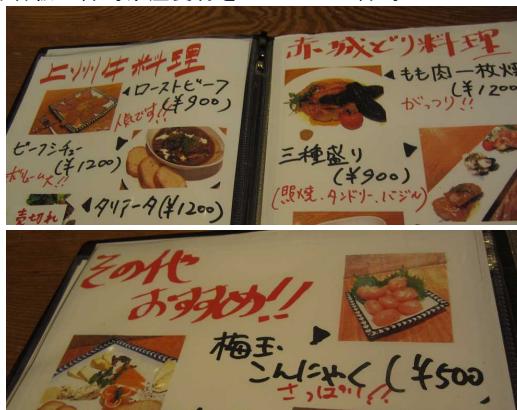 上州牛料理
◀ローストビーフ
(¥900)
人気です!!
ビーフシチュー
(¥1200)
ボリューム大!!
売切れ
◀タリアータ(¥1200)
赤城どり料理
◀もも肉一枚焼
(¥1200
がっつり!!
三種盛り
(¥900)
(照焼.タンドリー.バジル)
その他
おすすめ!!
梅玉
こんにゃく(¥500
さっぱり!!